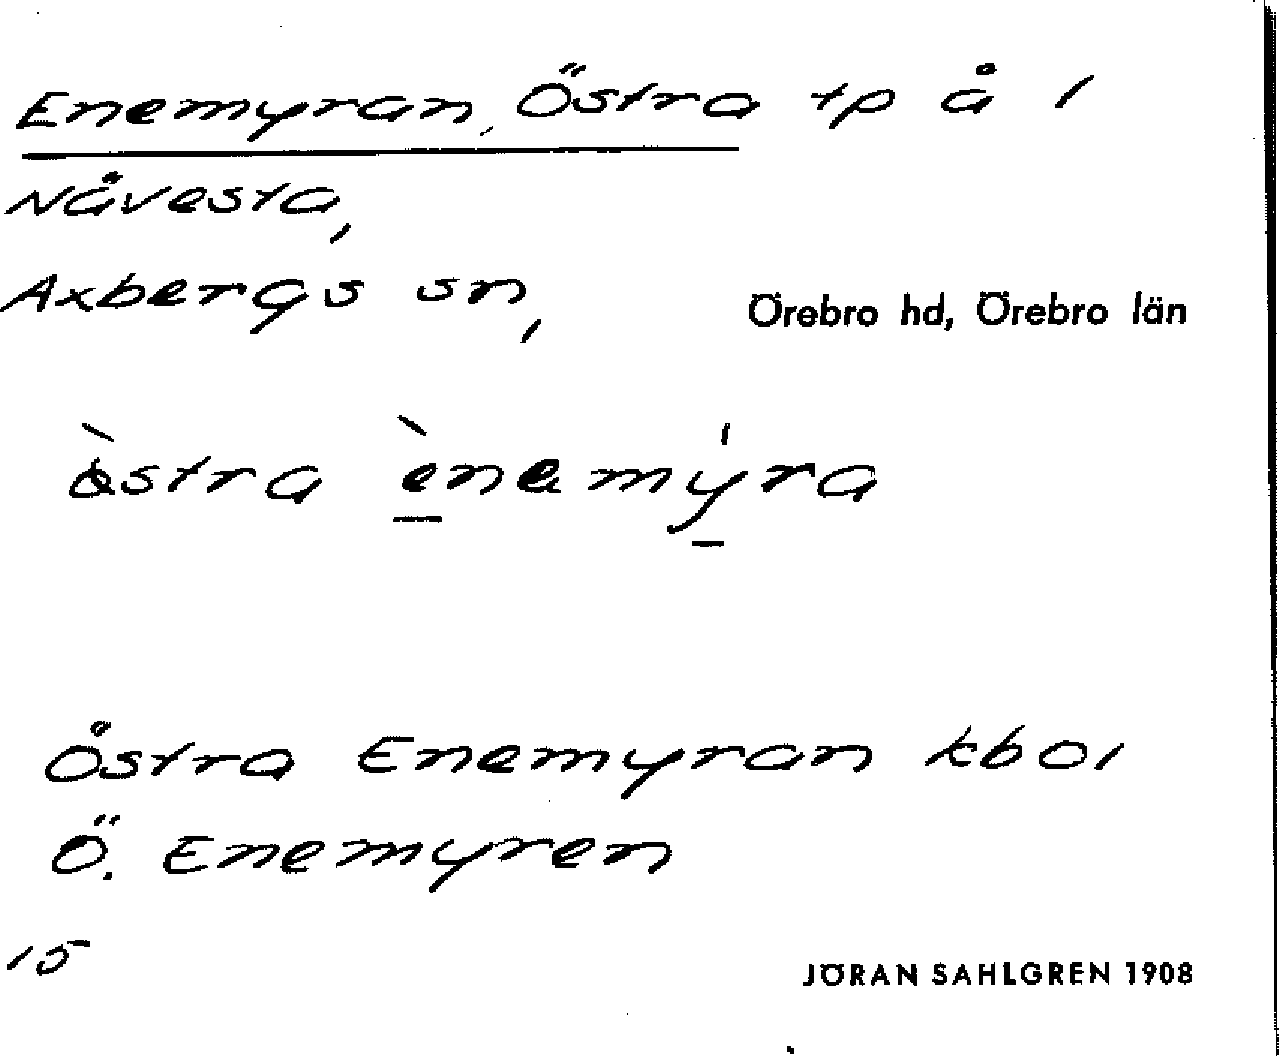 Enemyran, Östra tp å 1
Nåvesta,
Axbergs sn,
Örebro hd, Örebro län
östra ènemýra
Östra Enemyran kbol
Ö. Enemyren
15
JÖRAN SAHLGREN 1908